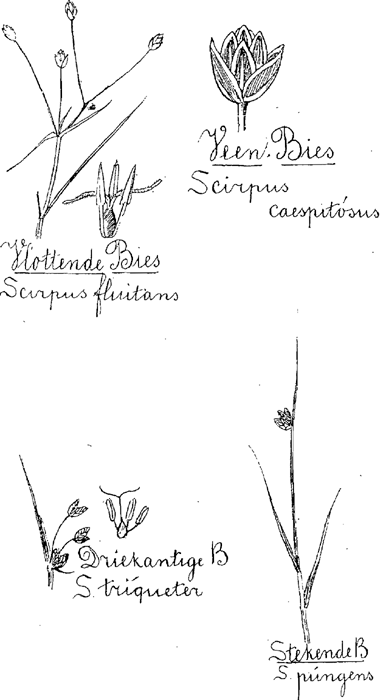 Veen. Bies
Scirpus
caespitósus
Vlottende Bies
Scirpus fluitans
Driekantige B
S. tríqueter
Stekende B
S. púngens